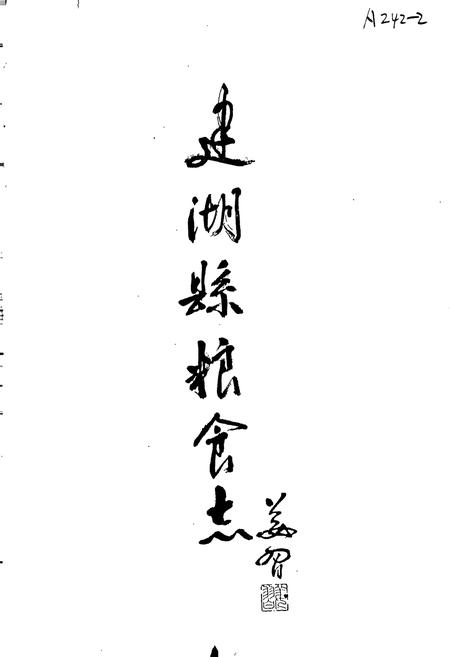 A242-2
建湖縣粮食志
姜習